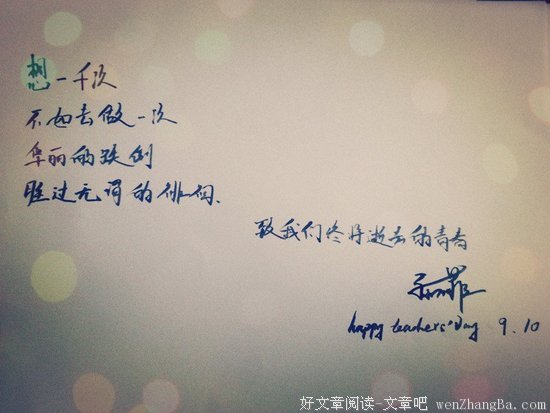 想一千次
不如去做一次
华丽的跌倒
胜过无谓的徘徊.
致我们终将逝去的青春
happy teachers' Day 9.10
好文章阅读-文章吧 wenZhangBa.com